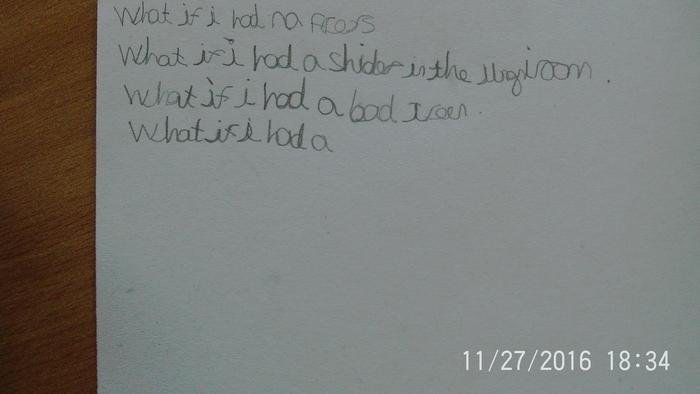 What if i had no
What if i had a shider in the room.
What if i had a bad
What if i had a
11/27/2016 18:34